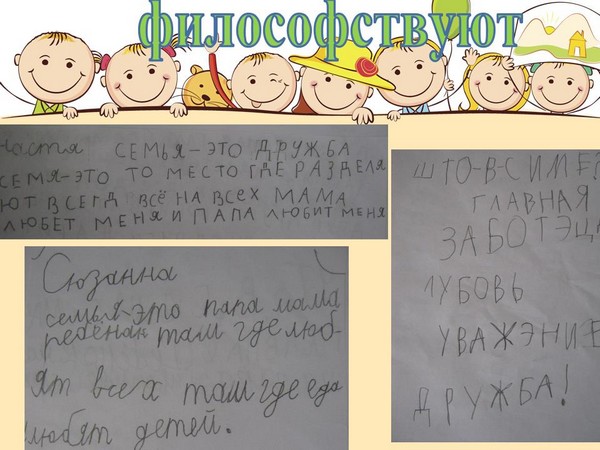 философствуют
Настя СЕМЬЯ-ЭТО ДРУЖБА
СЕМЯ-ЭТО ТО МЕСТО ГДЕ РАЗДЕЛЯ
ЮТ ВСЕГД ВСЁ НА ВСЕХ МАМА
ЛЮБЕТ МЕНЯ И ПАПА ЛЮБИТ МЕНЯ
Сюзанна
семья-это папа мама
ребёнак там где люб-
ят всех там где еда
любят детей.
ШТО-В-СИМЕ?
ГЛАВНАЯ
ЗАБОТЭЦА
ЛУБОВЬ
УВАЖЭНИЕ
ДРУЖБА!